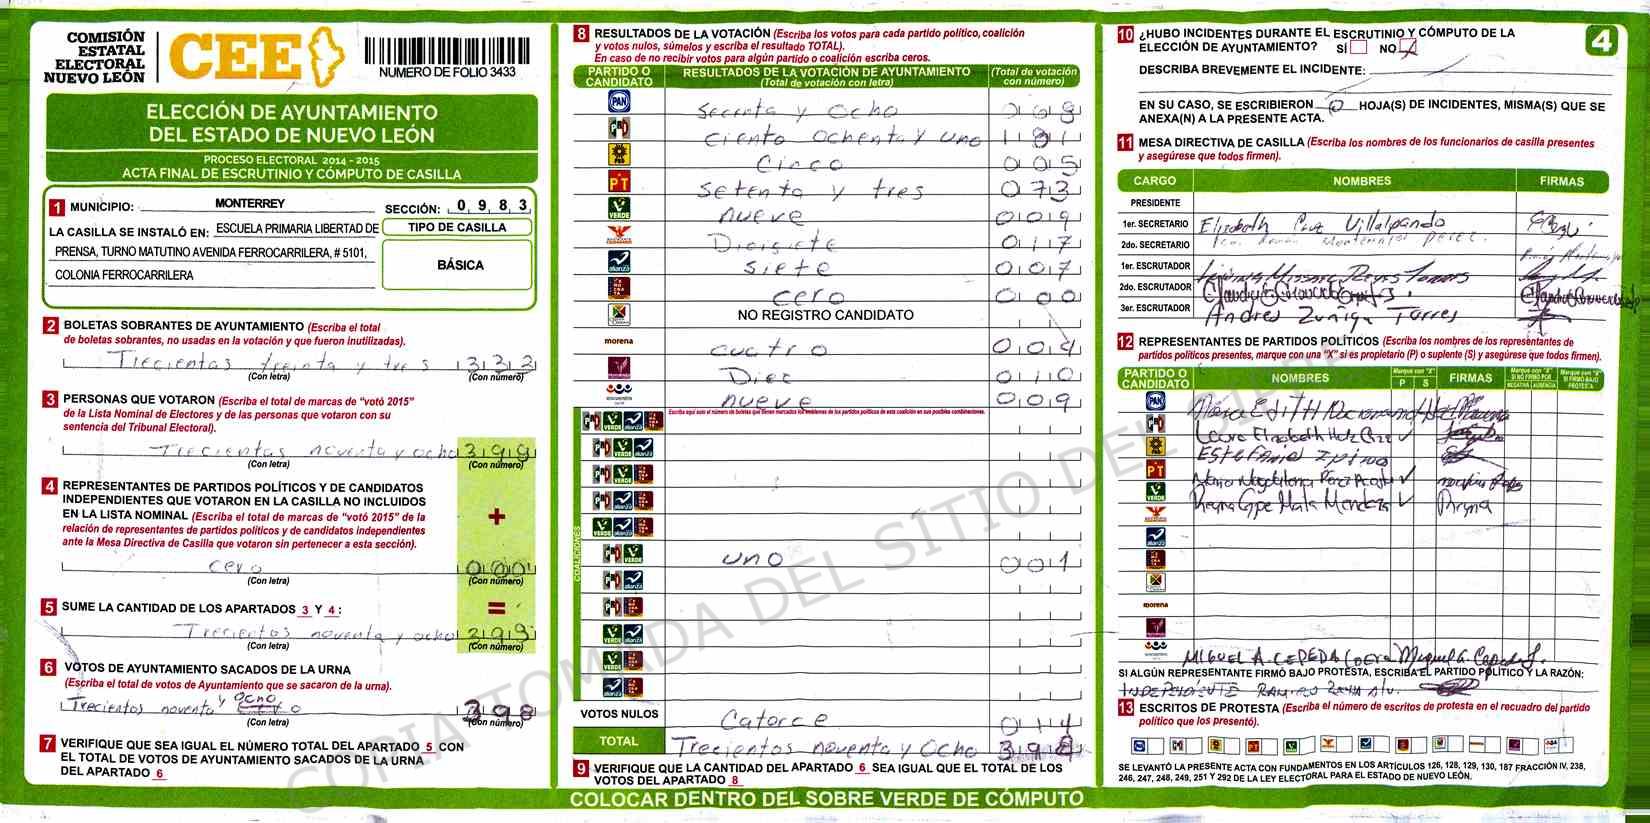 COMISIÓN
ESTATAL
ELECTORAL
NUEVO LEÓN
CEE
NUMERO DE FOLIO 3433
ELECCIÓN DE AYUNTAMIENTO
DEL ESTADO DE NUEVO LEÓN
PROCESO ELECTORAL 2014 - 2015
ACTA FINAL DE ESCRUTINIO Y CÓMPUTO DE CASILLA
1 MUNICIPIO: MONTERREY SECCIÓN: 0 9 8 3
LA CASILLA SE INSTALÓ EN: ESCUELA PRIMARIA LIBERTAD DE
PRENSA, TURNO MATUTINO AVENIDA FERROCARRILERA, # 5101,
COLONIA FERROCARRILERA
TIPO DE CASILLA
BÁSICA
2 BOLETAS SOBRANTES DE AYUNTAMIENTO (Escriba el total
de boletas sobrantes, no usadas en la votación y que fueron inutilizadas).
Trecientas treinta y tres 333
(Con letra) (Con número)
3 PERSONAS QUE VOTARON (Escriba el total de marcas de “votó 2015”
de la Lista Nominal de Electores y de las personas que votaron con su
sentencia del Tribunal Electoral).
Trecientas noventa y ocho 398
(Con letra) (Con número)
4 REPRESENTANTES DE PARTIDOS POLÍTICOS Y DE CANDIDATOS
INDEPENDIENTES QUE VOTARON EN LA CASILLA NO INCLUIDOS
EN LA LISTA NOMINAL (Escriba el total de marcas de “votó 2015” de la
relación de representantes de partidos políticos y de candidatos independientes
ante la Mesa Directiva de Casilla que votaron sin pertenecer a esta sección).
+
cero 000
(Con letra) (Con número)
5 SUME LA CANTIDAD DE LOS APARTADOS 3 Y 4 :
=
Trecientos noventa y ocho 398
(Con letra) (Con número)
6 VOTOS DE AYUNTAMIENTO SACADOS DE LA URNA
(Escriba el total de votos de Ayuntamiento que se sacaron de la urna).
Trecientos noventa y ocho 398
(Con letra) (Con número)
7 VERIFIQUE QUE SEA IGUAL EL NÚMERO TOTAL DEL APARTADO 5 CON
EL TOTAL DE VOTOS DE AYUNTAMIENTO SACADOS DE LA URNA
DEL APARTADO 6
8 RESULTADOS DE LA VOTACIÓN (Escriba los votos para cada partido político, coalición
y votos nulos, súmelos y escriba el resultado TOTAL).
En caso de no recibir votos para algún partido o coalición escriba ceros.
PARTIDO O CANDIDATO
RESULTADOS DE LA VOTACIÓN DE AYUNTAMIENTO
(Total de votación con letra)
(Total de votación con número)
PAN Secenta y Ocho 068
PRI Ciento Ochenta y uno 181
PRD Cinco 005
PT Setenta y tres 073
VERDE nueve 009
Diecisiete 017
alianza siete 007
cero 000
NO REGISTRO CANDIDATO
morena cuatro 004
Diez 010
encuentro nueve 009
Escriba aquí sólo el número de boletas que tienen marcados los emblemas de los partidos políticos de esta coalición en sus posibles combinaciones.
COALICIONES
PRI VERDE uno 001
VOTOS NULOS Catorce 014
TOTAL Trecientos noventa y Ocho 398
9 VERIFIQUE QUE LA CANTIDAD DEL APARTADO 6 SEA IGUAL QUE EL TOTAL DE LOS
VOTOS DEL APARTADO 8
COLOCAR DENTRO DEL SOBRE VERDE DE CÓMPUTO
4
10 ¿HUBO INCIDENTES DURANTE EL ESCRUTINIO Y CÓMPUTO DE LA
ELECCIÓN DE AYUNTAMIENTO? SÍ NO
DESCRIBA BREVEMENTE EL INCIDENTE:
EN SU CASO, SE ESCRIBIERON 0 HOJA(S) DE INCIDENTES, MISMA(S) QUE SE
ANEXA(N) A LA PRESENTE ACTA.
11 MESA DIRECTIVA DE CASILLA (Escriba los nombres de los funcionarios de casilla presentes
y asegúrese que todos firmen).
CARGO NOMBRES FIRMAS
PRESIDENTE
1er. SECRETARIO Elizabeth Cruz Villalpando
2do. SECRETARIO
1er. ESCRUTADOR
2do. ESCRUTADOR
3er. ESCRUTADOR Andres Zuñiga Torres
12 REPRESENTANTES DE PARTIDOS POLÍTICOS (Escriba los nombres de los representantes de
partidos políticos presentes, marque con una “X” si es propietario (P) o suplente (S) y asegúrese que todos firmen).
PARTIDO O CANDIDATO NOMBRES P S FIRMAS
PAN
PRI
PRD
PT
VERDE Reyna Gpe Mata Mendoza Reyna
alianza
morena
MIGUEL A. CEPEDA
SI ALGÚN REPRESENTANTE FIRMÓ BAJO PROTESTA, ESCRIBA EL PARTIDO POLÍTICO Y LA RAZÓN:
INDEPENDIENTE
13 ESCRITOS DE PROTESTA (Escriba el número de escritos de protesta en el recuadro del partido
político que los presentó).
SE LEVANTÓ LA PRESENTE ACTA CON FUNDAMENTOS EN LOS ARTÍCULOS 126, 128, 129, 130, 187 FRACCIÓN IV, 238,
246, 247, 248, 249, 251 Y 292 DE LA LEY ELECTORAL PARA EL ESTADO DE NUEVO LEÓN.
COPIA TOMADA DEL SITIO DEL SIPRE